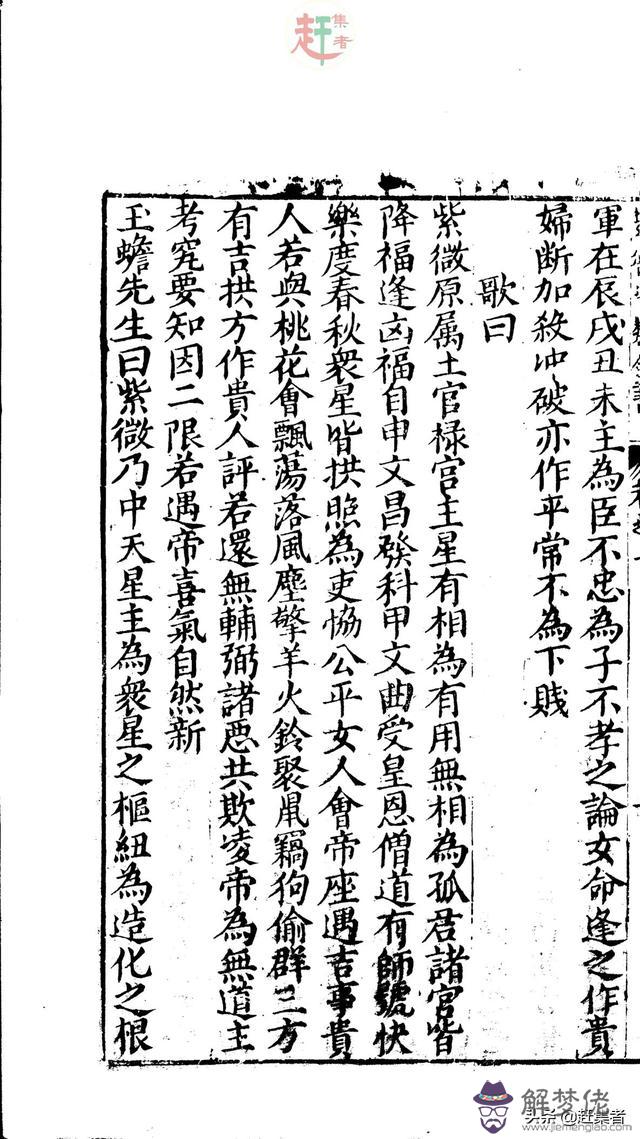 赶集者
軍在辰戌丑未主為臣不忠為子不孝之論女命逢之作貴
婦断加殺冲破亦作平常不為下賤
歌曰
紫微原属土官禄宫主星有相為有用無相為孤君諸宫皆
降福逢凶福自申文昌發科甲文曲受皇恩僧道有師號快
樂度春秋衆星皆拱照為吏恊公平女人會帝座遇吉事貴
人若與桃花會飄蕩落風塵擎羊火鈴聚鼠竊狗偷群三方
有吉拱方作貴人評若還無輔弼諸恶共欺凌帝為無道主
考究要知因二限若遇帝喜氣自然新
玉蟾先生曰紫微乃中天星主為衆星之樞紐為造化之根
解梦佬
www.jiemenglao.com
头条 @赶集者